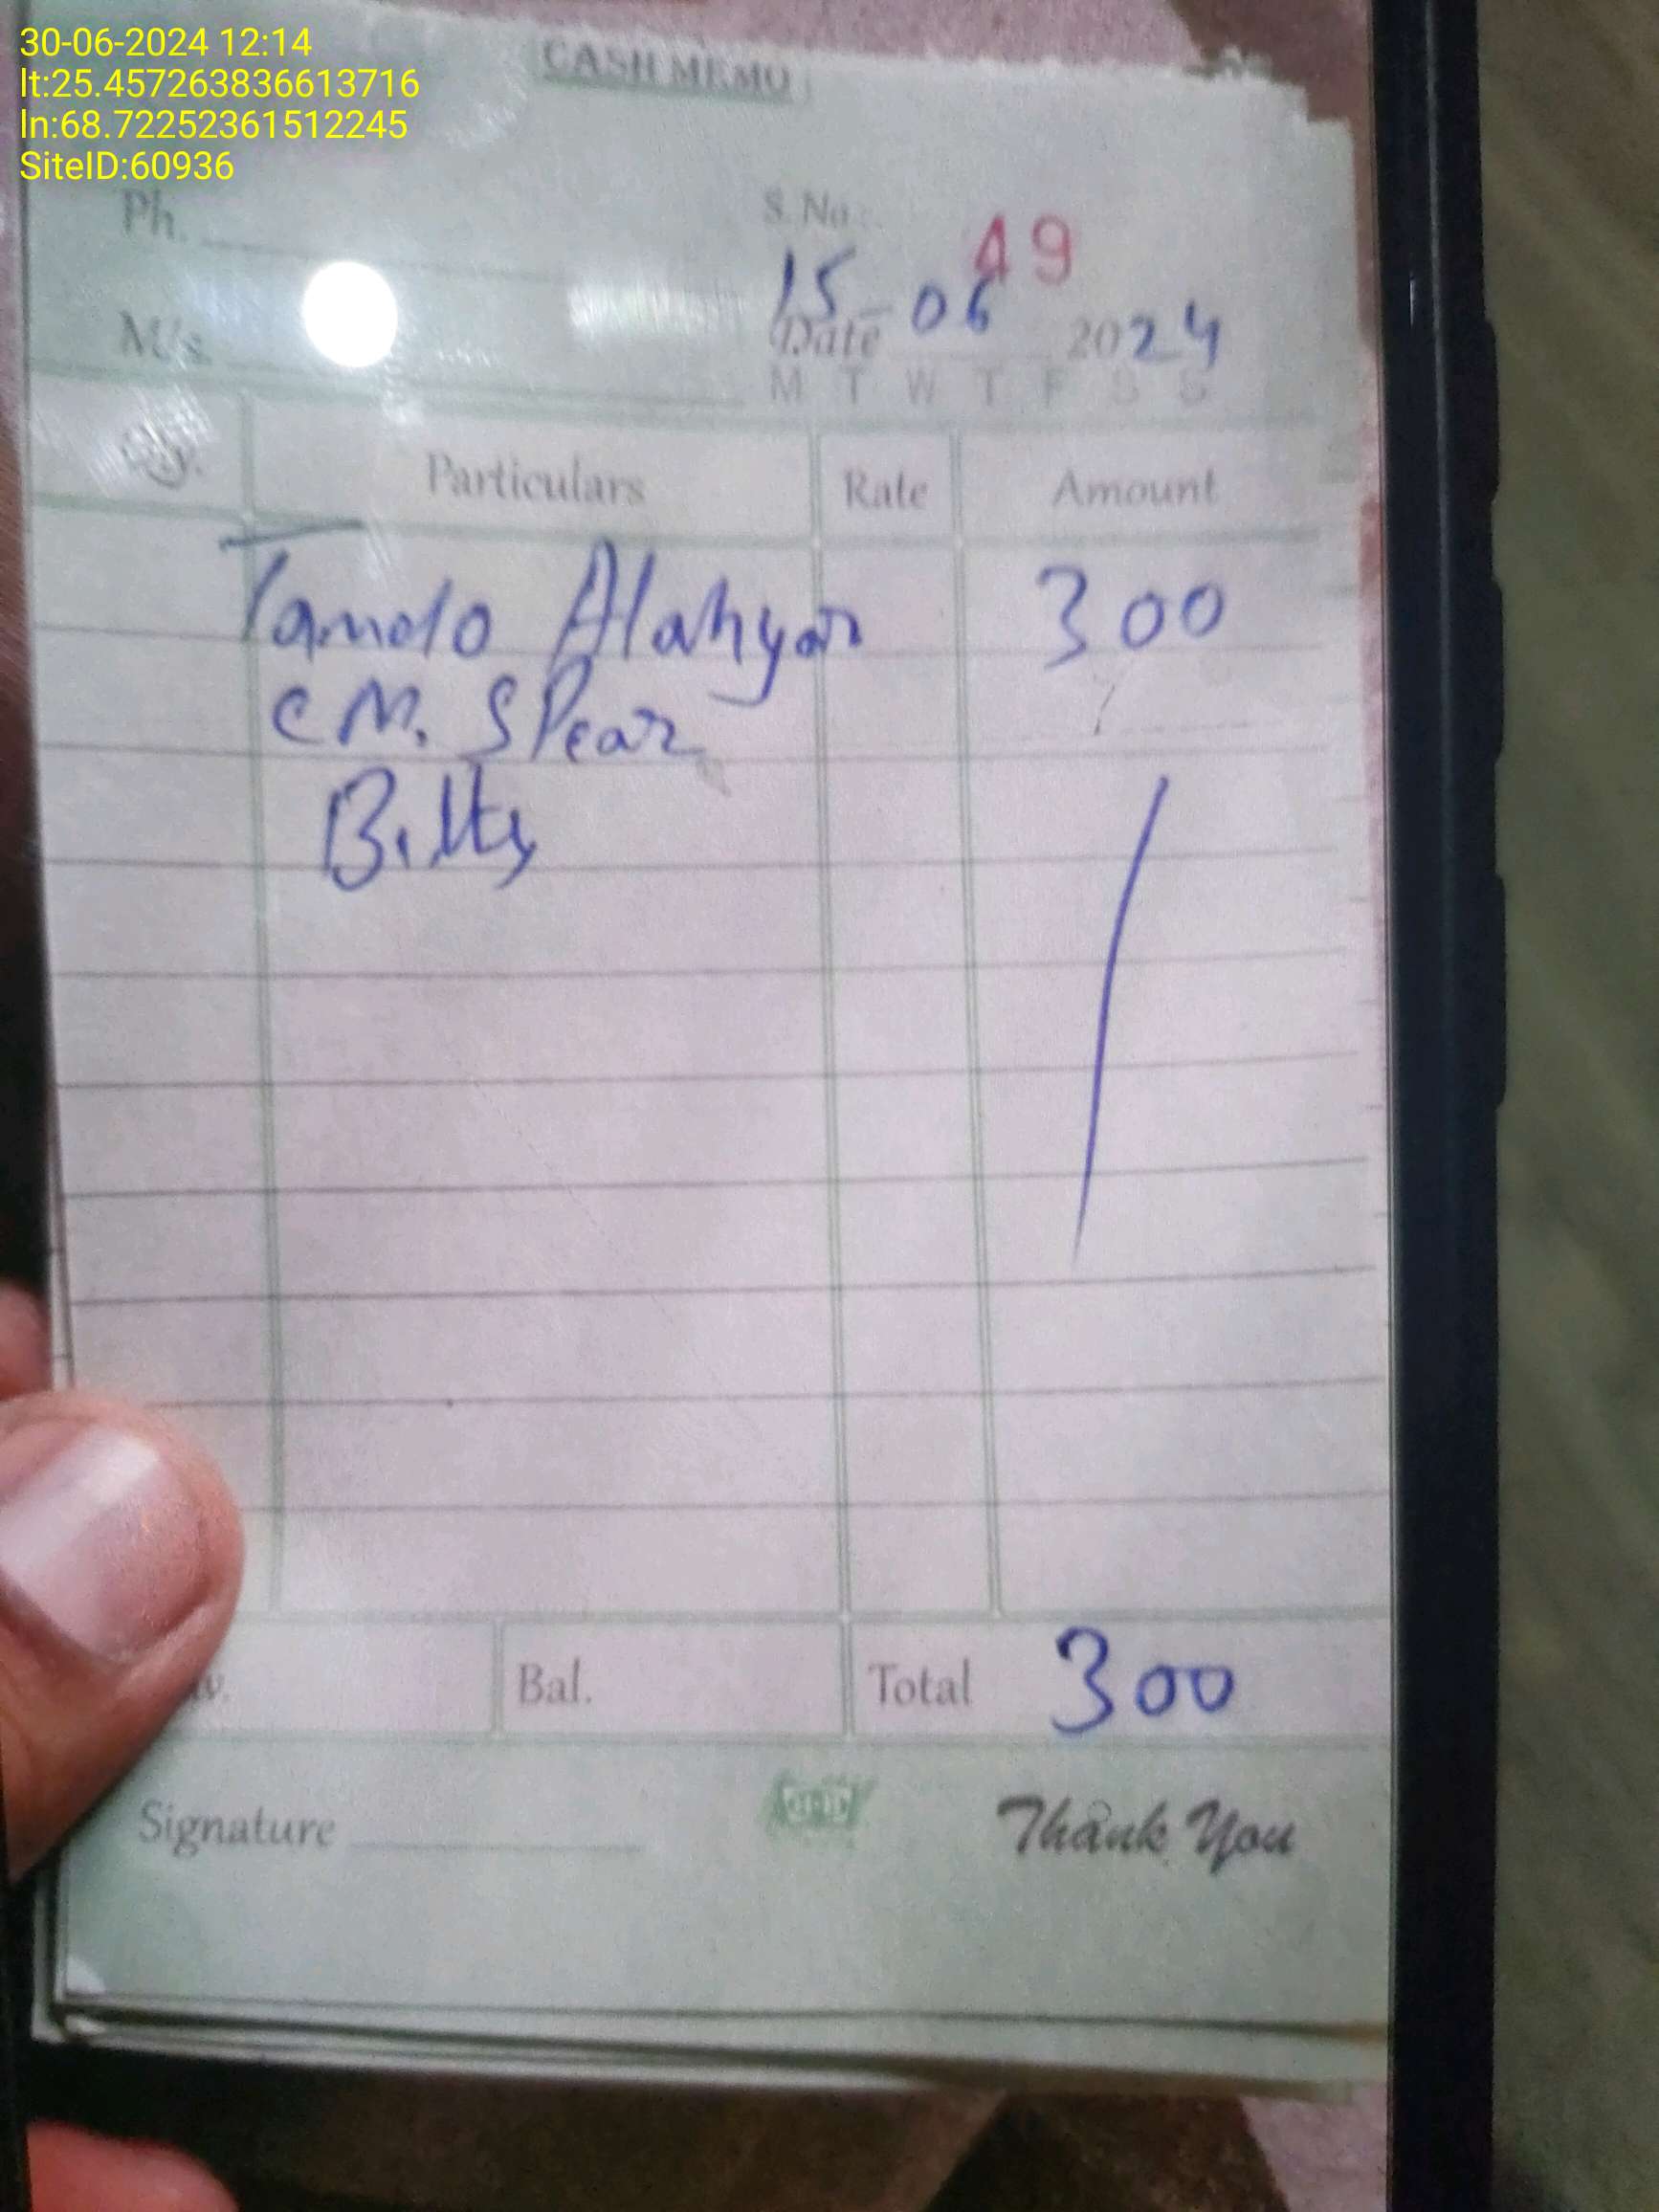 30-06-2024 12:14
lt:25.457263836613716
ln:68.72252361512245
SiteID:60936
CASH MEMO
Ph.
S. No.
49
M/s.
15-06
Date 2024
M T W T F S S
Qty. Particulars Rate Amount
Tamdo Alahyar 300
CM. SPear
Bilty
Bal. Total 300
Signature Thank You